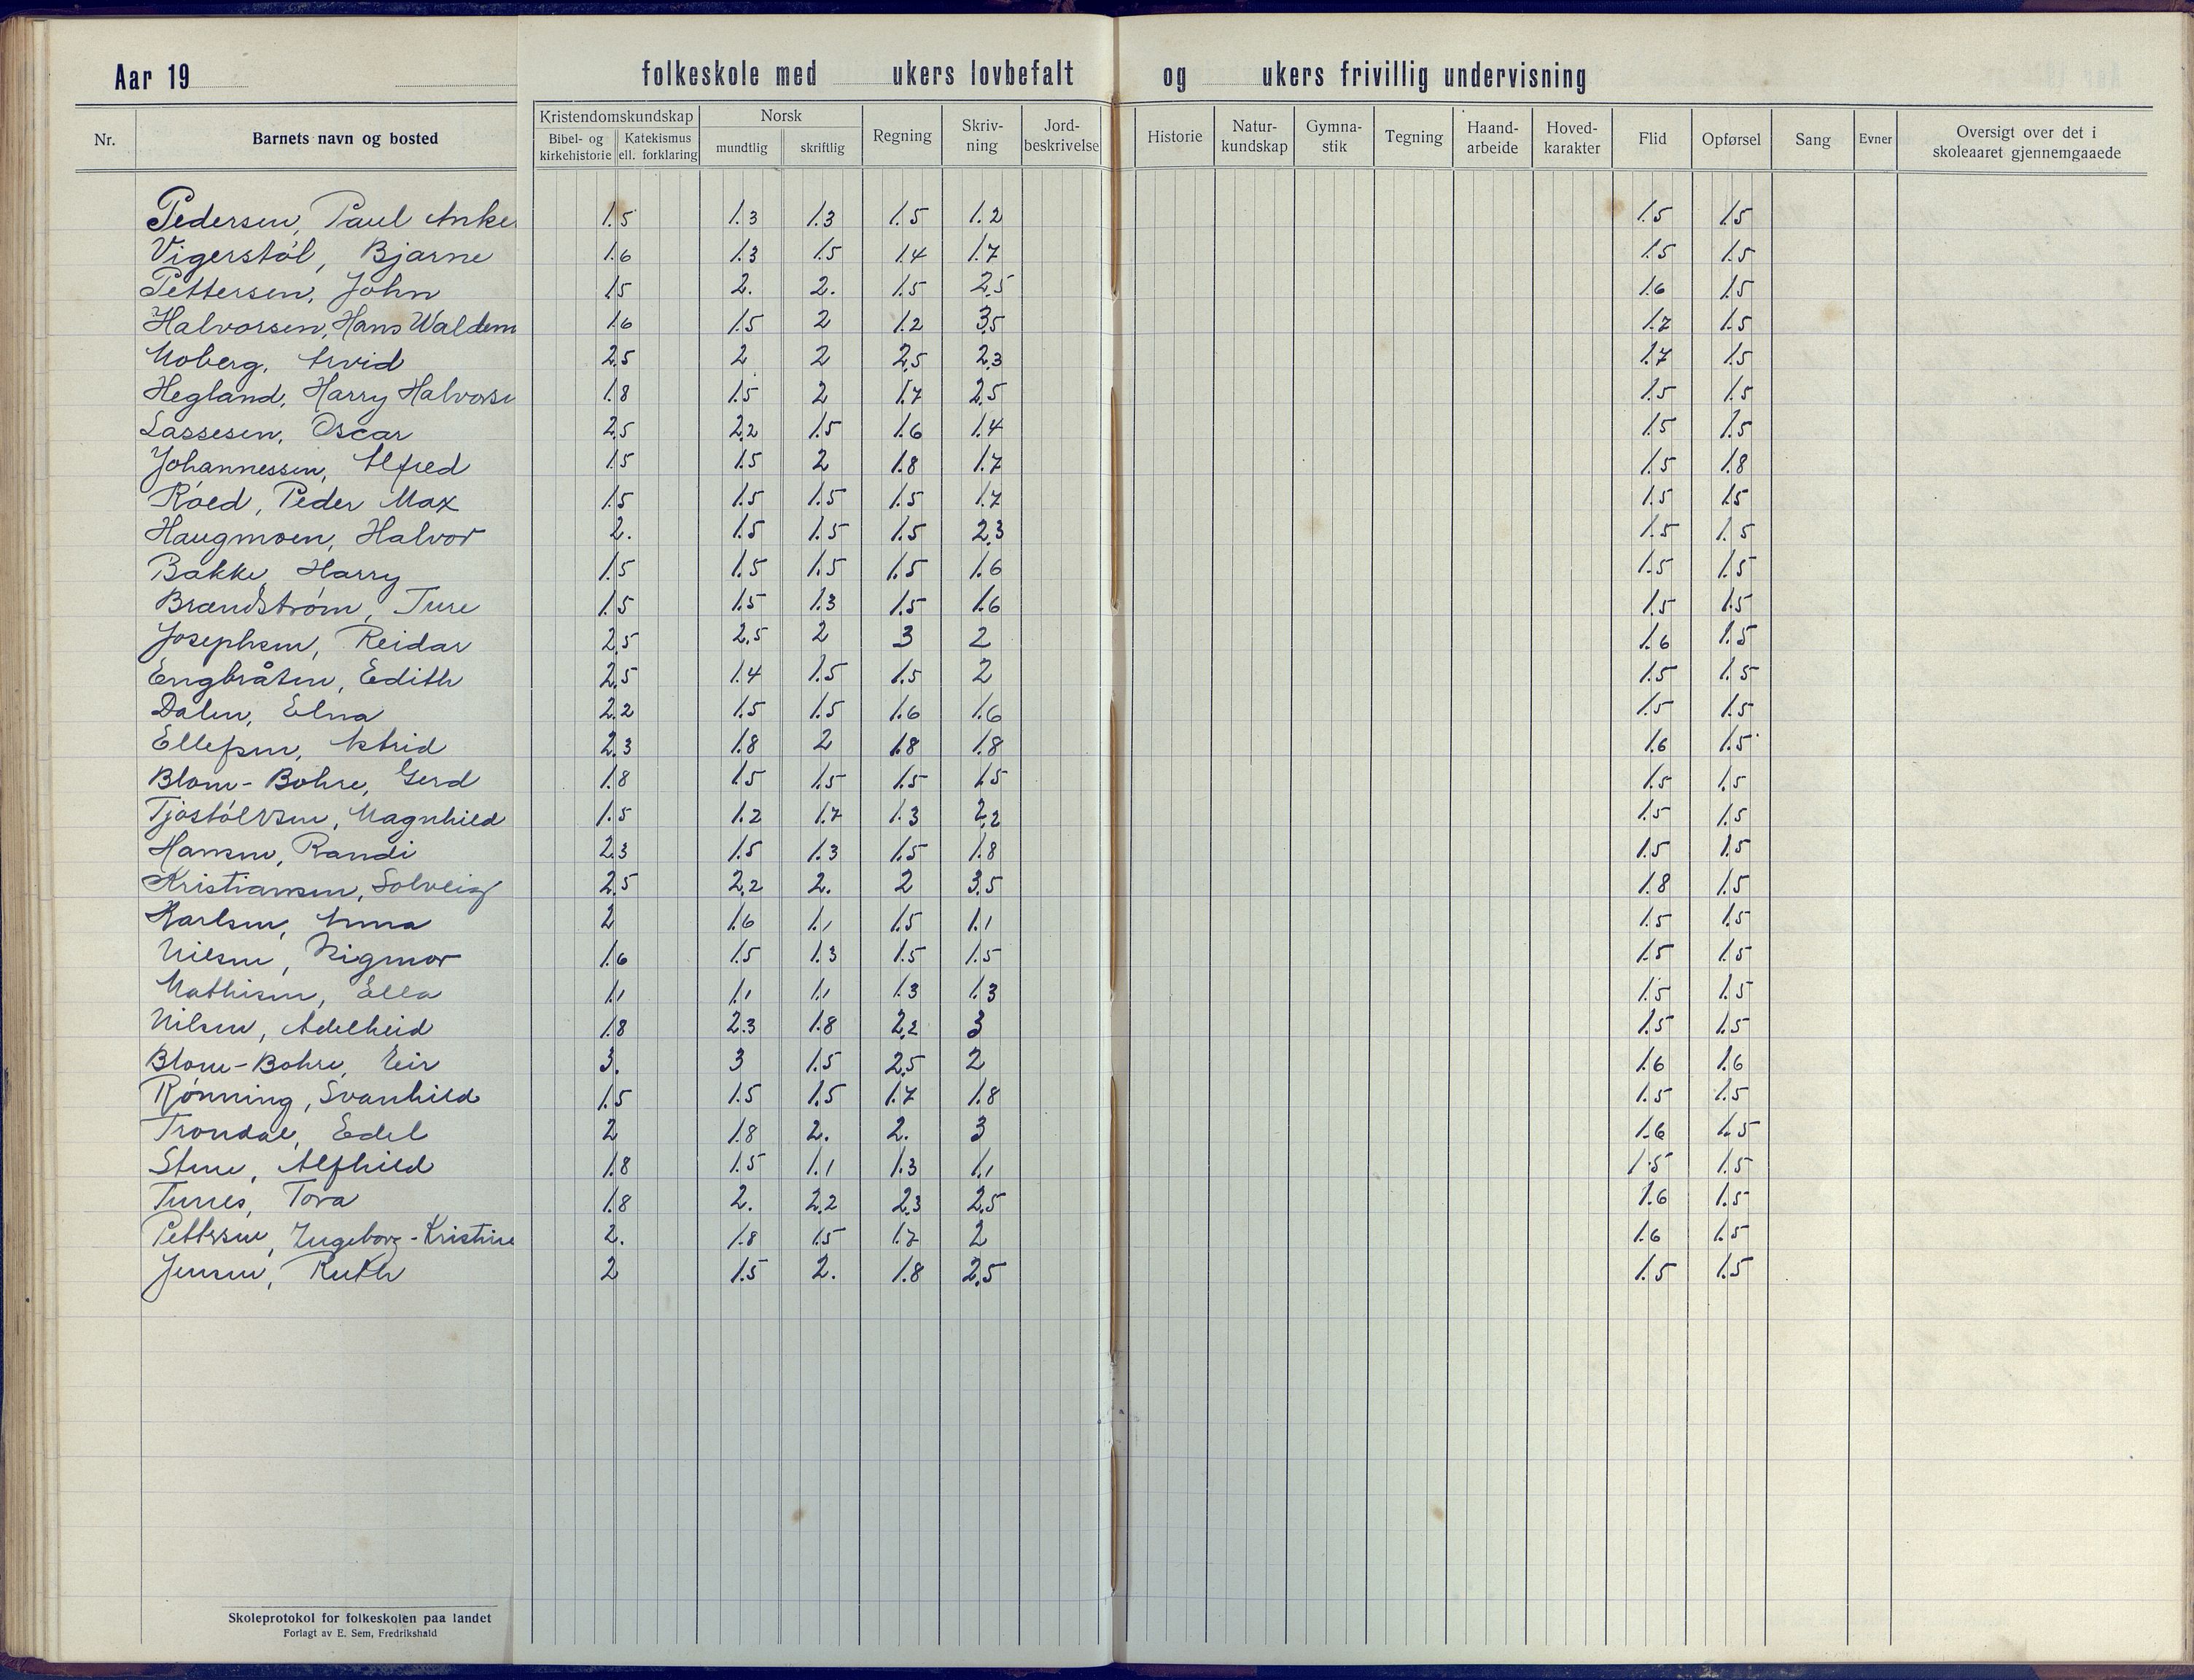 Aar 19 folkeskole med ukers lovbefalt og ukers frivillig undervisning
Nr. Barnets navn og bosted Kristendomskundskap Bibel- og kirkehistorie Katekismus ell. forklaring Norsk mundtlig skriftlig Regning Skriv-ning Jord-beskrivelse Historie Natur-kundskap Gymna-stik Tegning Haand-arbeide Hoved-karakter Flid Opførsel Sang Evner Oversigt over det i skoleaaret gjennemgaaede
Pedersen, Paul Anker 1.5 1.3 1.3 1.5 1.2 1.5 1.5
Vigerstøl, Bjarne 1.6 1.3 1.5 1.4 1.7 1.5 1.5
Pettersen, John 1.5 2. 2. 1.5 2.5 1.6 1.5
Halvorsen, Hans Waldem 1.6 1.5 2 1.2 3.5 1.7 1.5
Moberg, Arvid 2.5 2 2 2.5 2.3 1.7 1.5
Hegland, Harry Halvorse 1.8 1.5 2 1.7 2.5 1.5 1.5
Lassesen, Oscar 2.5 2.2 1.5 1.6 1.4 1.5 1.5
Johannessen, Alfred 1.5 1.5 2 1.8 1.7 1.5 1.8
Røed, Peder Max 1.5 1.5 1.5 1.5 1.7 1.5 1.5
Haugmoen, Halvor 2. 1.5 1.5 1.5 2.3 1.5 1.5
Bakke, Harry 1.5 1.5 1.5 1.5 1.6 1.5 1.5
Brændstrøm, Ture 1.5 1.5 1.3 1.5 1.6 1.5 1.5
Josephsen, Reidar 2.5 2.5 2 3 2 1.6 1.5
Engbråten, Edith 2.5 1.4 1.5 1.5 2 1.5 1.5
Dalen, Elna 2.2 1.5 1.5 1.6 1.6 1.5 1.5
Ellefsen, Astrid 2.3 1.8 2 1.8 1.8 1.6 1.5
Blom-Bohre, Gerd 1.8 1.5 1.5 1.5 1.5 1.5 1.5
Tjøstølvsen, Magnhild 1.5 1.2 1.7 1.3 2.2 1.5 1.5
Hansen, Randi 2.3 1.5 1.3 1.5 1.8 1.5 1.5
Kristiansen, Solveig 2.5 2.2 2. 2 3.5 1.8 1.5
Karlsen, Anna 2 1.6 1.1 1.5 1.1 1.5 1.5
Nilsen, Rigmor 1.6 1.5 1.3 1.5 1.5 1.5 1.5
Mathisen, Ella 1.1 1.1 1.1 1.3 1.3 1.5 1.5
Nilsen, Adelheid 1.8 2.3 1.8 2.2 3 1.5 1.5
Blom-Bohre, Eir 3. 3 1.5 2.5 2 1.6 1.6
Rønning, Svanhild 1.5 1.5 1.5 1.7 1.8 1.5 1.5
Trondal, Edel 2 1.8 2. 2. 3 1.6 1.5
Stene, Alfhild 1.8 1.5 1.1 1.3 1.1 1.5 1.5
Tunes, Tora 1.8 2. 2.2 2.3 2.5 1.6 1.5
Pettersen, Ingeborg-Kristine 2. 1.8 1.5 1.7 2 1.6 1.5
Jensen, Ruth 2 1.5 2. 1.8 2.5 1.5 1.5
Skoleprotokol for folkeskolen paa landet
Forlagt av E. Sem, Fredrikshald